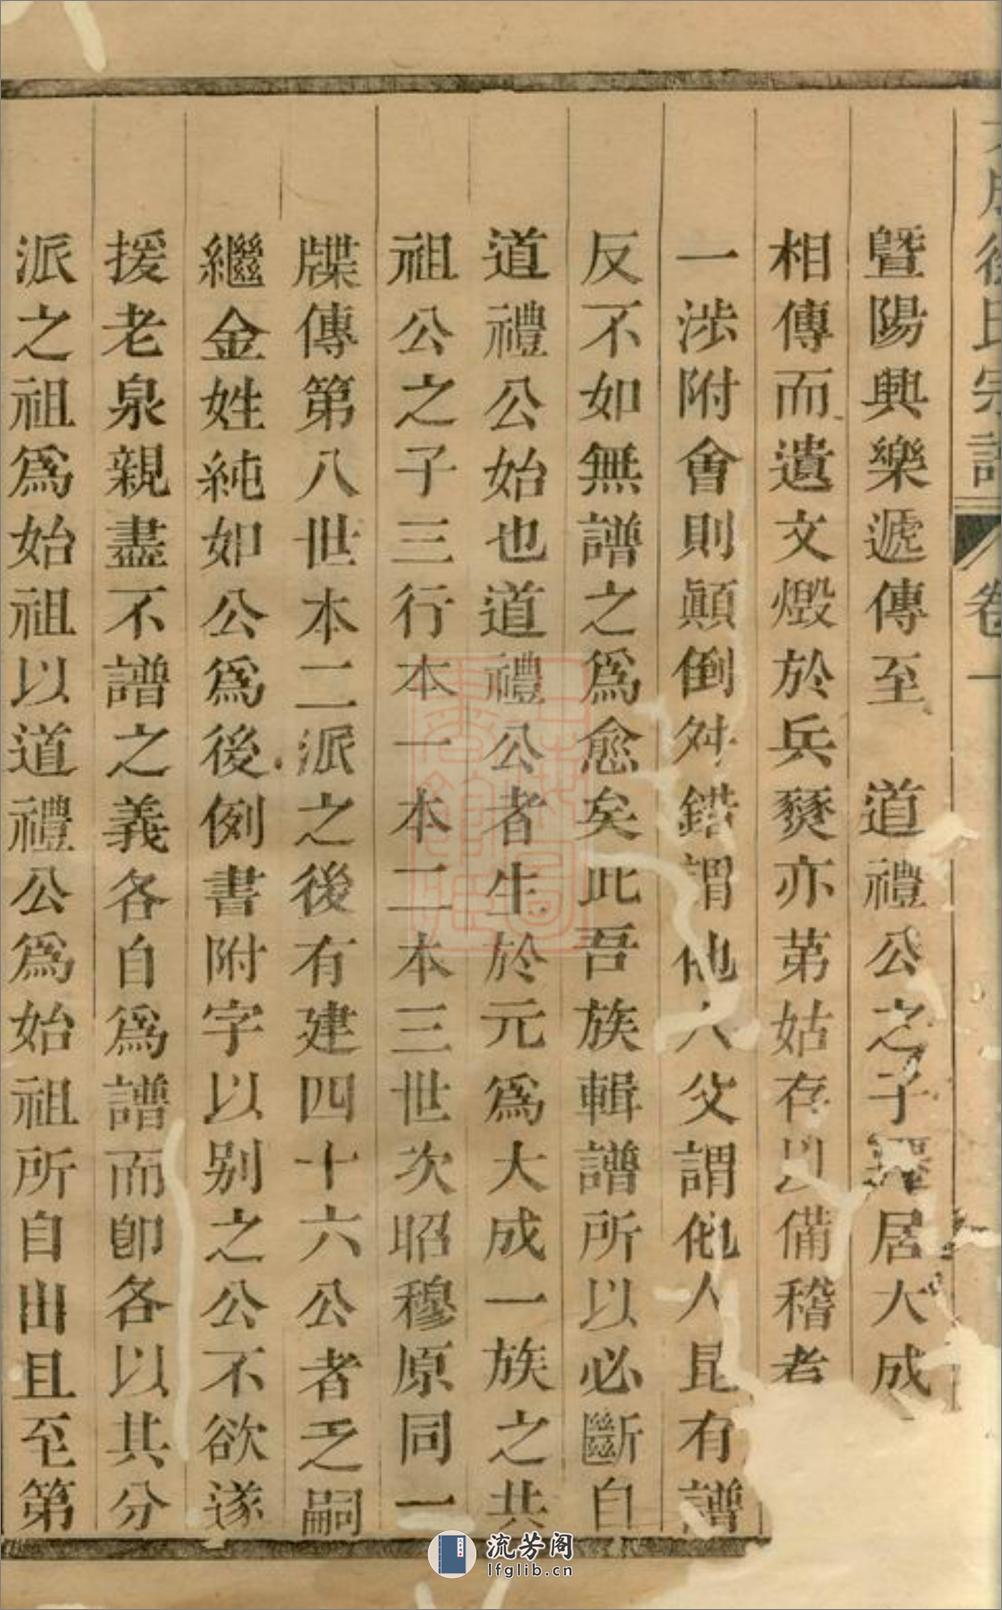 大成徐氏宗譜 卷一
暨陽興樂遞傳至 道禮公之子 居大成
相傳而遺文燬於兵燹亦苐姑存以備稽考
一涉附會則顚倒舛錯謂他人父謂他人昆有譜
反不如無譜之爲愈矣此吾族輯譜所以必斷自
道禮公始也道禮公者生於元爲大成一族之共
祖公之子三行本一本二本三世次昭穆原同一
牒傳第八世本二派之後有建四十六公者乏嗣
繼金姓純如公爲後例書附字以别之公不欲遂
援老泉親盡不譜之義各自爲譜而卽各以其分
派之祖爲始祖以道禮公爲始祖所自出且至第
流芳阁
lfglib.cn